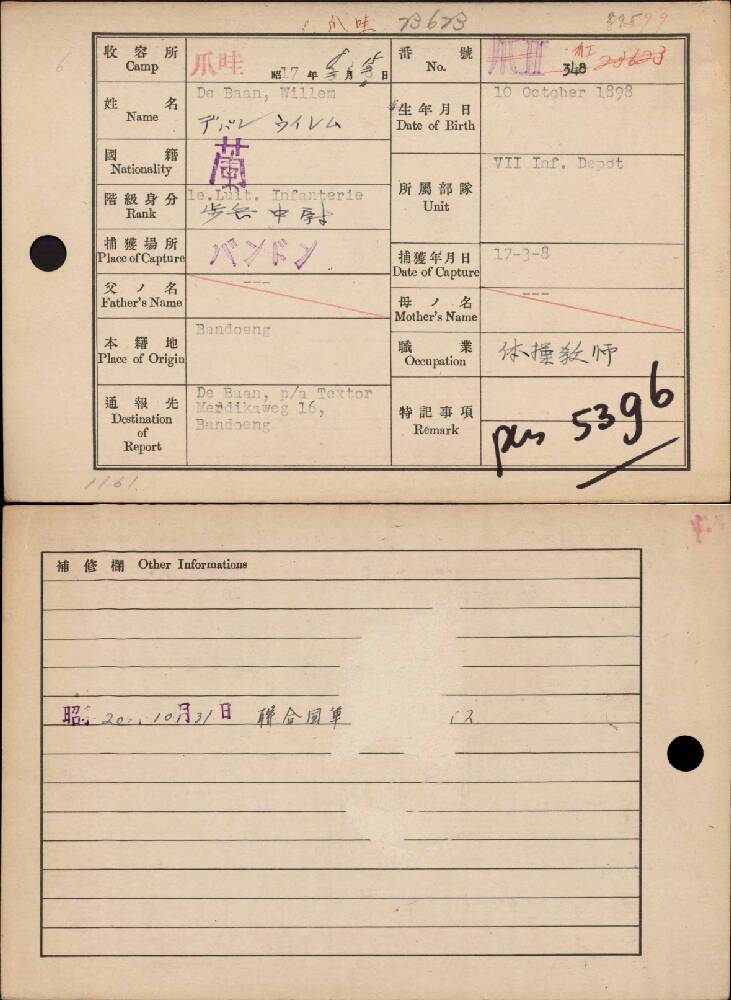 爪哇 23623
收容所 Camp 爪哇 昭17年 月 日
番號 No. 348 23623
姓名 Name De Baan, Willem
デバレ ウイレム
生年月日 Date of Birth 10 October 1898
國籍 Nationality 蘭
所屬部隊 Unit VII Inf. Depot
階級身分 Rank 1e.Luit. Infanterie
歩兵中尉
捕獲場所 Place of Capture バンドン
捕獲年月日 Date of Capture 17-3-8
父ノ名 Father's Name ---
母ノ名 Mother's Name ---
本籍地 Place of Origin Bandoeng
職業 Occupation 体操敎師
通報先 Destination of Report De Baan, p/a Textor
Merdikaweg 16,
Bandoeng
特記事項 Remark
5396
1161
補修欄 Other Informations
昭 20. 10月31日 聯合国軍